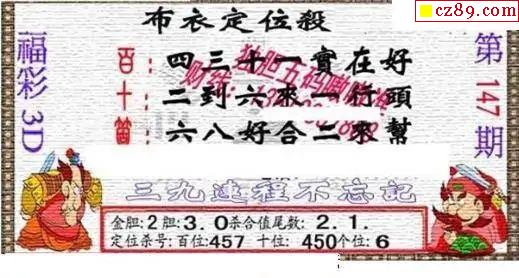 cz89.com
布衣定位殺
福彩3D
第147期
百：四三十一實在好
十：二到六來一行頭
個：六八好合二來幫
三九達程不忘記
金胆:2胆:3.0杀合值尾数:2.1.
定位杀号:百位:457 十位:450个位:6